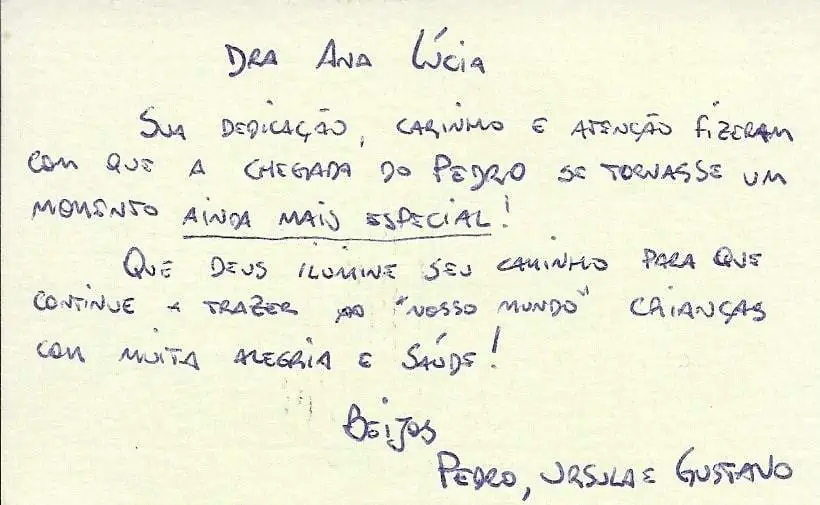 DRA ANA LÚCIA
SUA DEDICAÇÃO, CARINHO E ATENÇÃO FIZERAM
COM QUE A CHEGADA DO PEDRO SE TORNASSE UM
MOMENTO AINDA MAIS ESPECIAL!
QUE DEUS ILUMINE SEU CAMINHO PARA QUE
CONTINUE A TRAZER AO "NOSSO MUNDO" CRIANÇAS
COM MUITA ALEGRIA E SAÚDE!
BEIJOS
PEDRO, URSULA E GUSTAVO